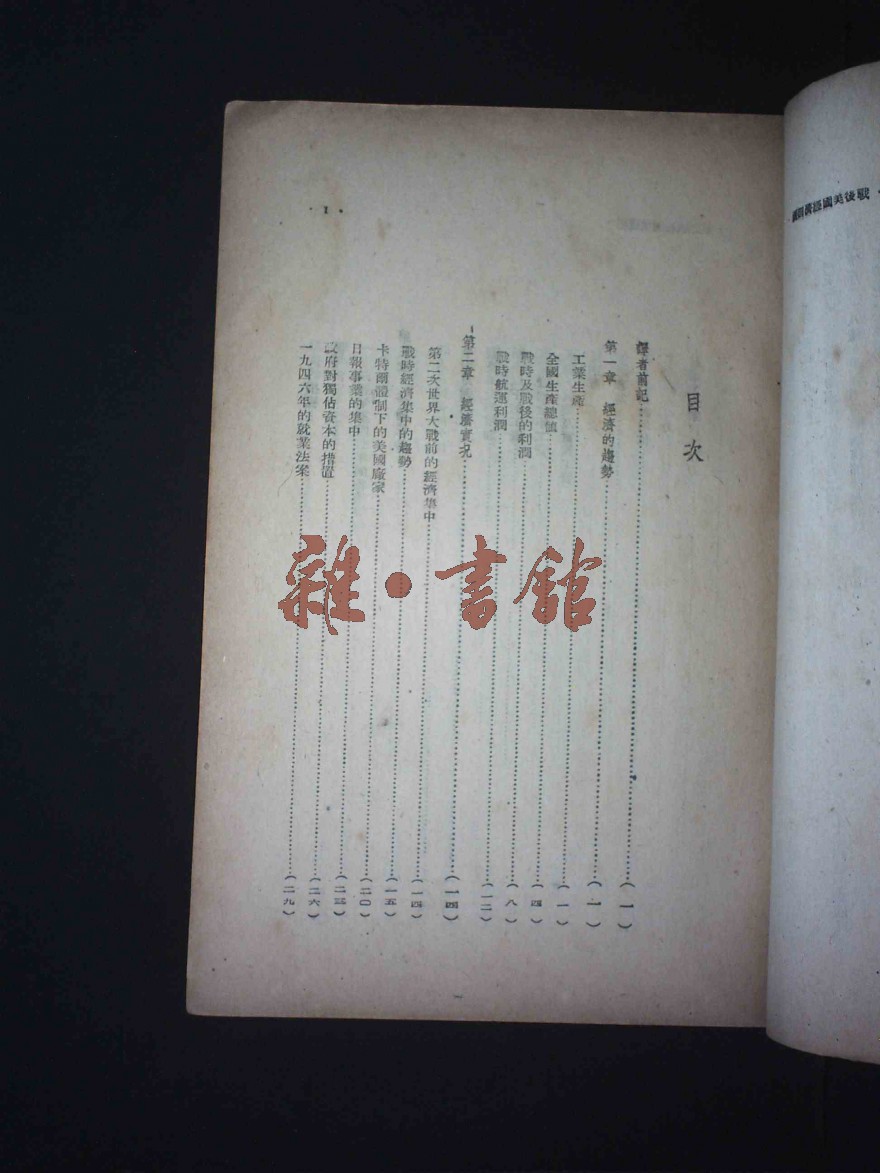 戰後美國經濟剖視
· 1 ·
目次
譯者前記……(一)
第一章 經濟的趨勢……(一)
工業生產……(一)
全國生產總值……(四)
戰時及戰後的利潤……(八)
戰時航運利潤……(一二)
第二章 經濟實況……(一四)
第二次世界大戰前的經濟集中……(一四)
戰時經濟集中的趨勢……(一五)
卡特爾體制下的美國廠家……(二〇)
日報事業的集中……(二三)
政府對獨佔資本的措置……(二六)
一九四六年的就業法案……(二九)
雜·書館